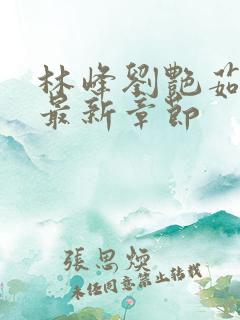 林峰劉艷茹
最新章節
張思煥
未经同意禁止转载